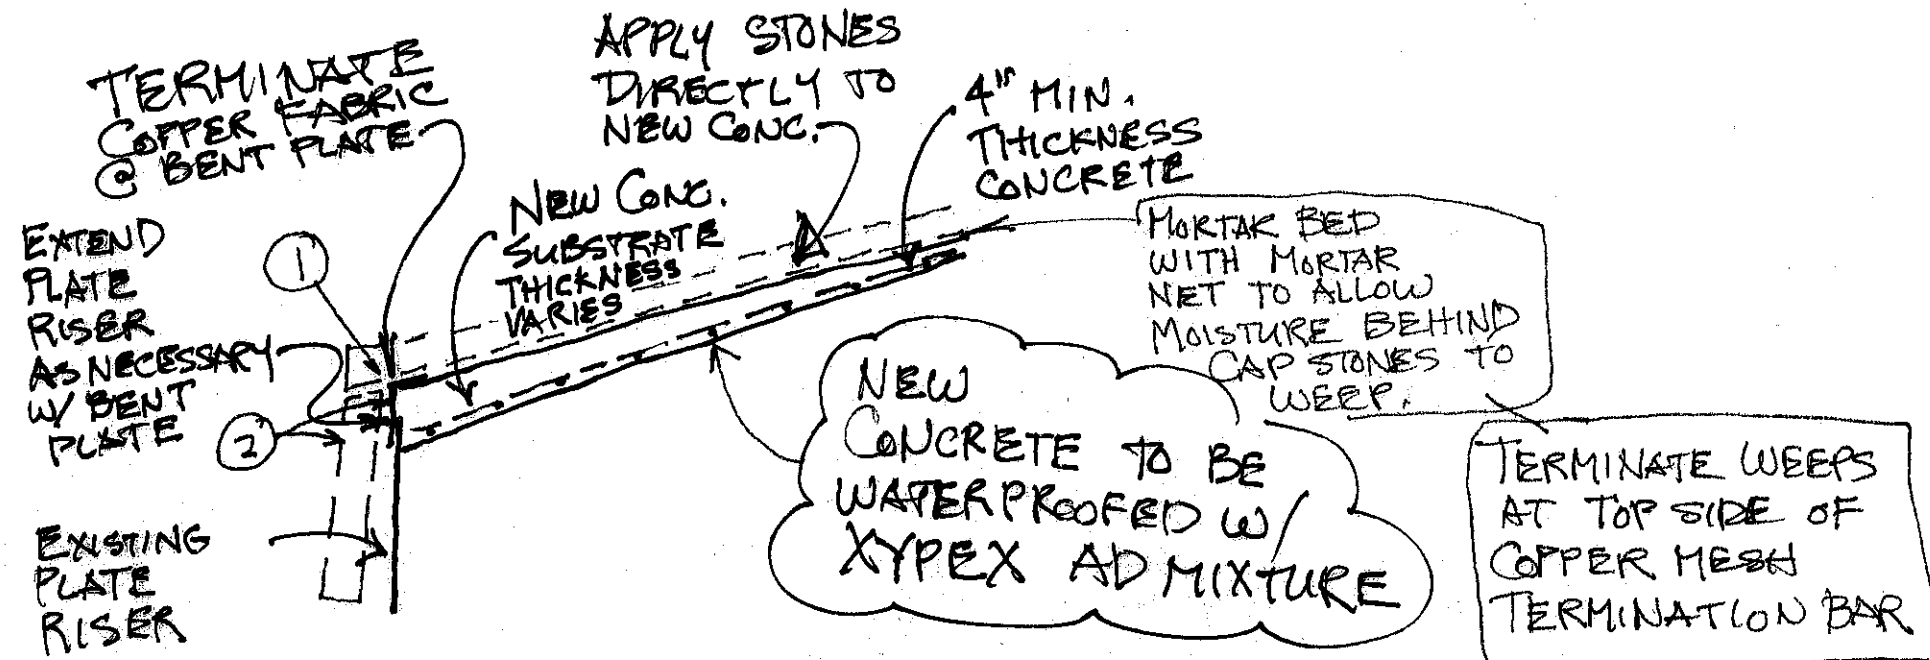 TERMINATE
COPPER FABRIC
@ BENT PLATE
APPLY STONES
DIRECTLY TO
NEW CONC.
4" MIN.
THICKNESS
CONCRETE
NEW CONC.
SUBSTRATE
THICKNESS
VARIES
EXTEND
PLATE
RISER
AS NECESSARY
W/ BENT
PLATE
1
2
MORTAR BED
WITH MORTAR
NET TO ALLOW
MOISTURE BEHIND
CAP STONES TO
WEEP.
NEW
CONCRETE TO BE
WATERPROOFED W/
XYPEX ADMIXTURE
TERMINATE WEEPS
AT TOP SIDE OF
COPPER MESH
TERMINATION BAR
EXISTING
PLATE
RISER